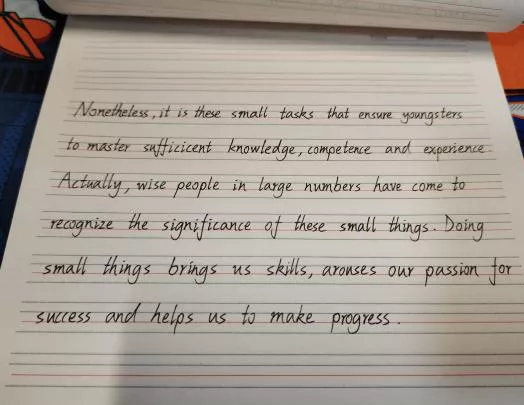 Nonetheless, it is these small tasks that ensure youngsters
to master sufficicent knowledge, competence and experience.
Actually, wise people in large numbers have come to
recognize the significance of these small things. Doing
small things brings us skills, arouses our passion for
success and helps us to make progress.